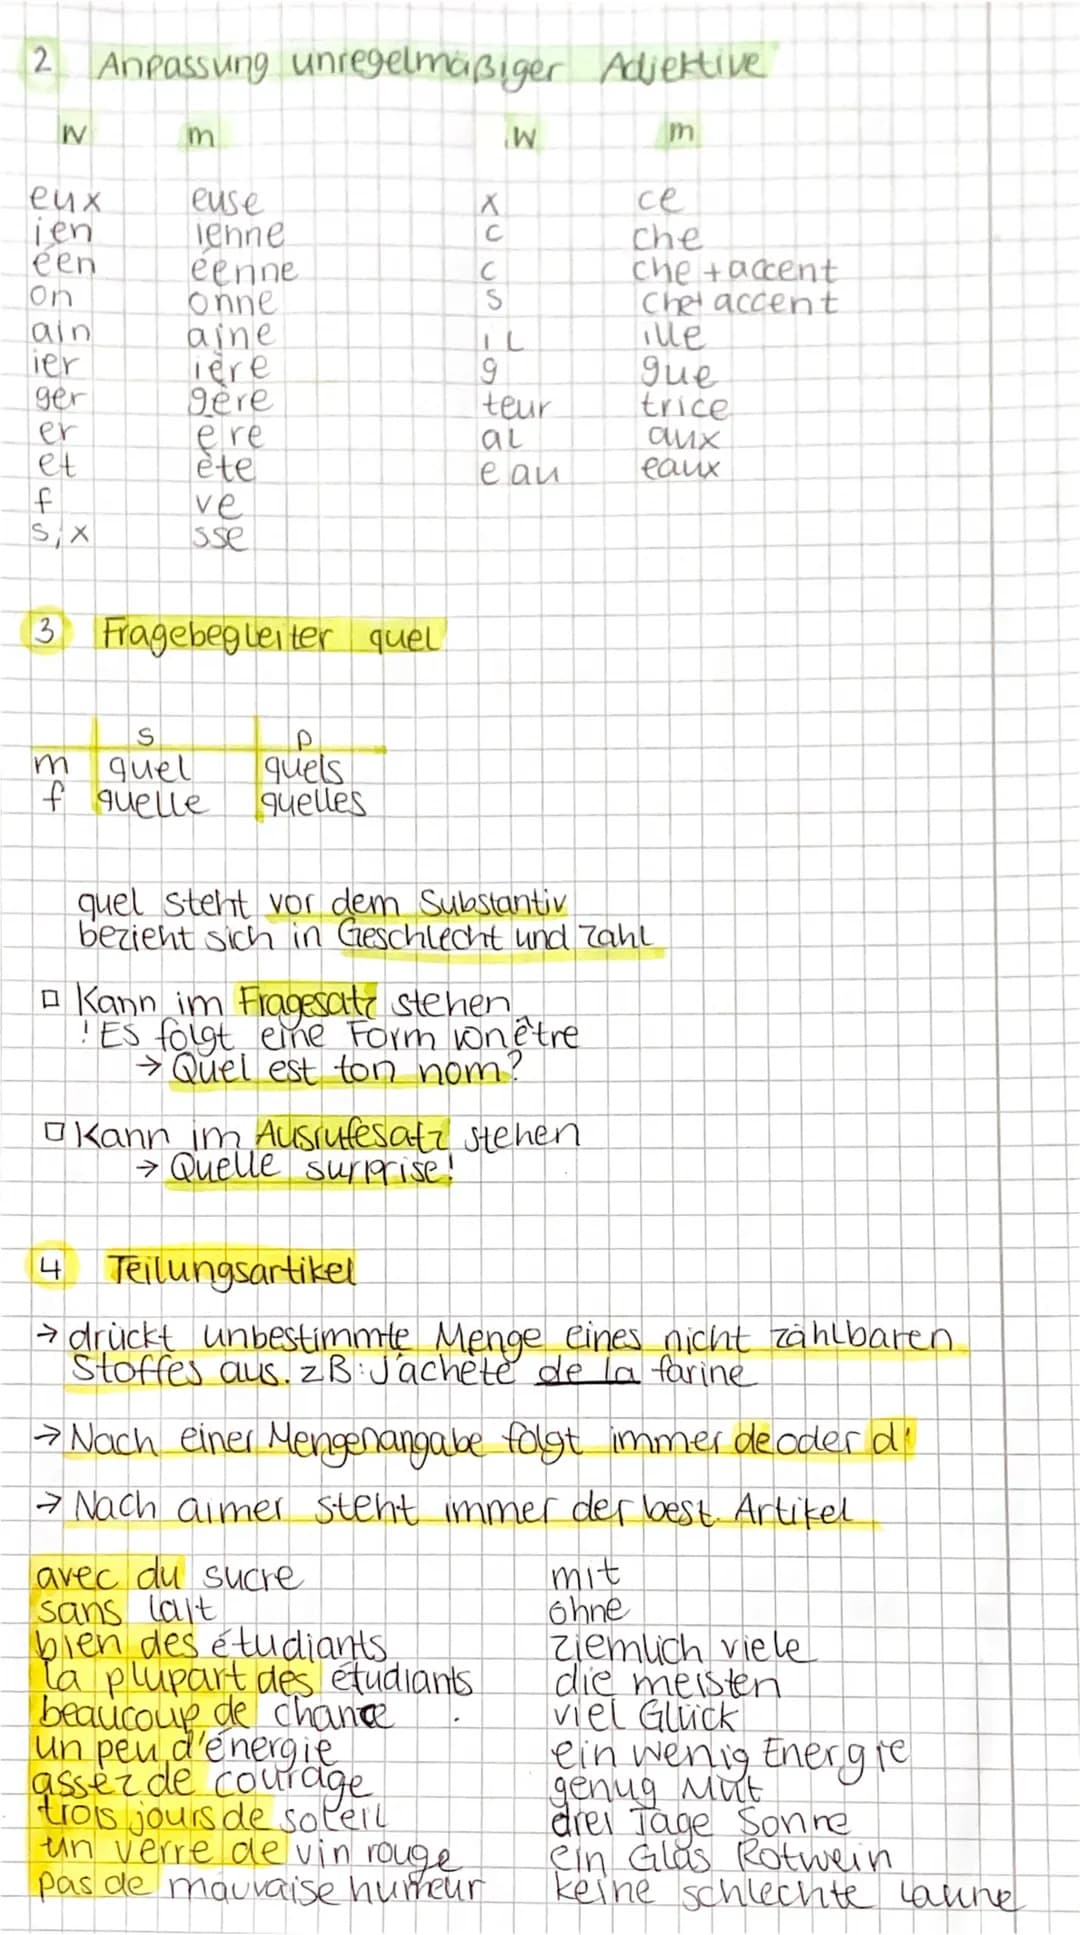 2 Anpassung unregelmäßiger Adjektive
W m W m
eux euse x ce
ien ienne c che
éen éenne c che + accent
on onne s che + accent
ain aine il ille
ier ière g gue
ger gère teur trice
er ere al aux
et ète eau eaux
f ve
s, x sse
3 Fragebegleiter quel
s p
m quel quels
f quelle quelles
quel steht vor dem Substantiv
bezieht sich in Geschlecht und Zahl
□ Kann im Fragesatz stehen
! ES folgt eine Form von être
→ Quel est ton nom?
□ Kann im Ausrufesatz stehen
→ Quelle surprise!
4 Teilungsartikel
→ drückt unbestimmte Menge eines nicht zählbaren
Stoffes aus. zB: J'achète de la farine
→ Nach einer Mengenangabe folgt immer de oder d'
→ Nach aimer steht immer der best. Artikel
avec du sucre mit
sans lait ohne
bien des étudiants ziemlich viele
la plupart des étudiants die meisten
beaucoup de chance viel Glück
un peu d'énergie ein wenig Energie
assez de courage genug Mut
trois jours de soleil drei Tage Sonne
un verre de vin rouge ein Glas Rotwein
pas de mauvaise humeur keine schlechte Laune